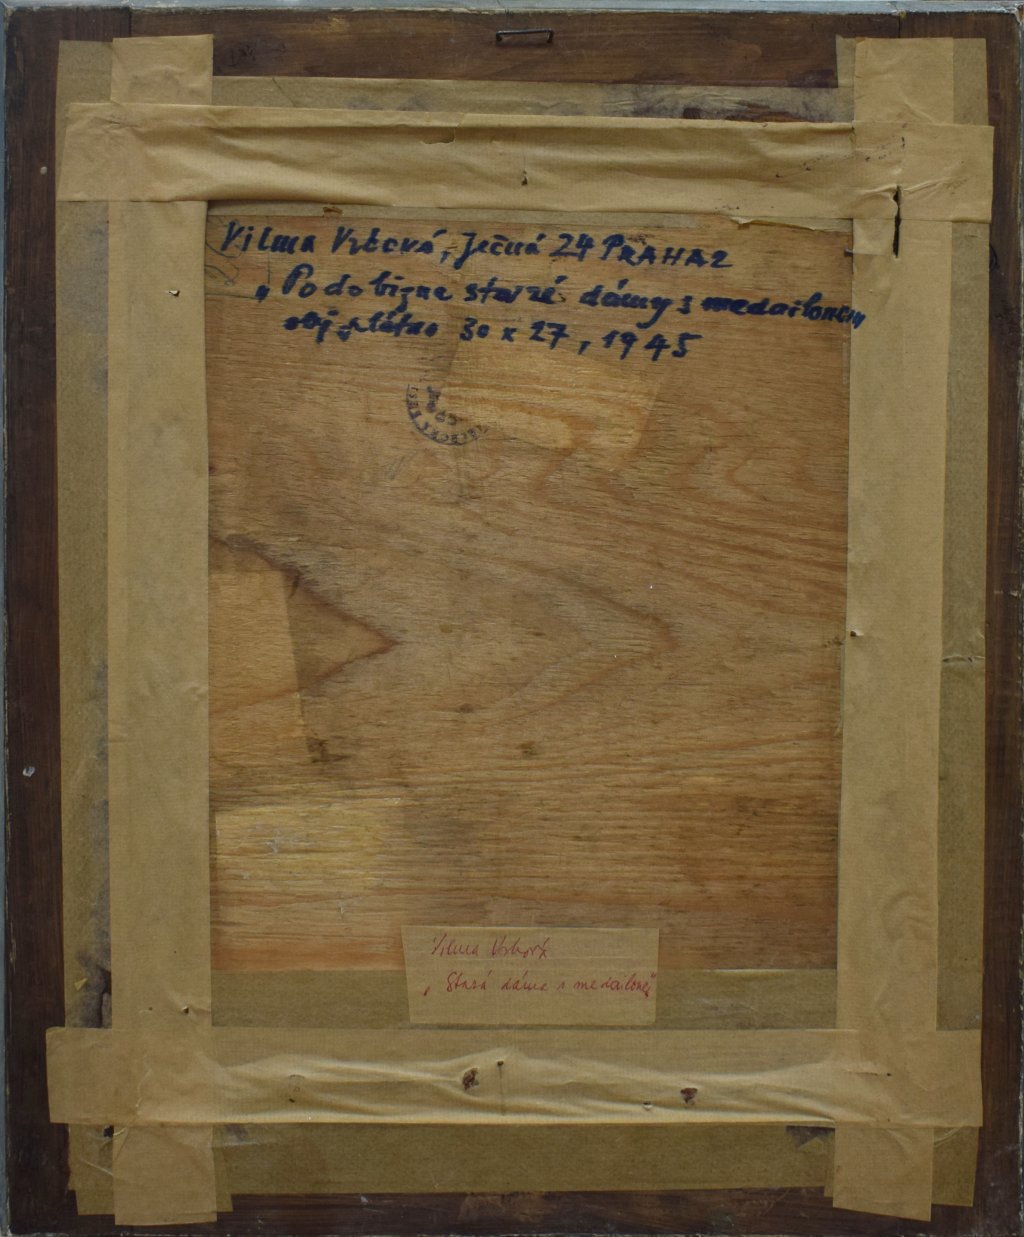 Vilma Vrbová, Ječná 24 PRAHA 2
„Podobizna staré dámy s medailonem
olej plátno 30 x 27, 1945
Vilma Vrbová
„Stará dáma s medailonem"